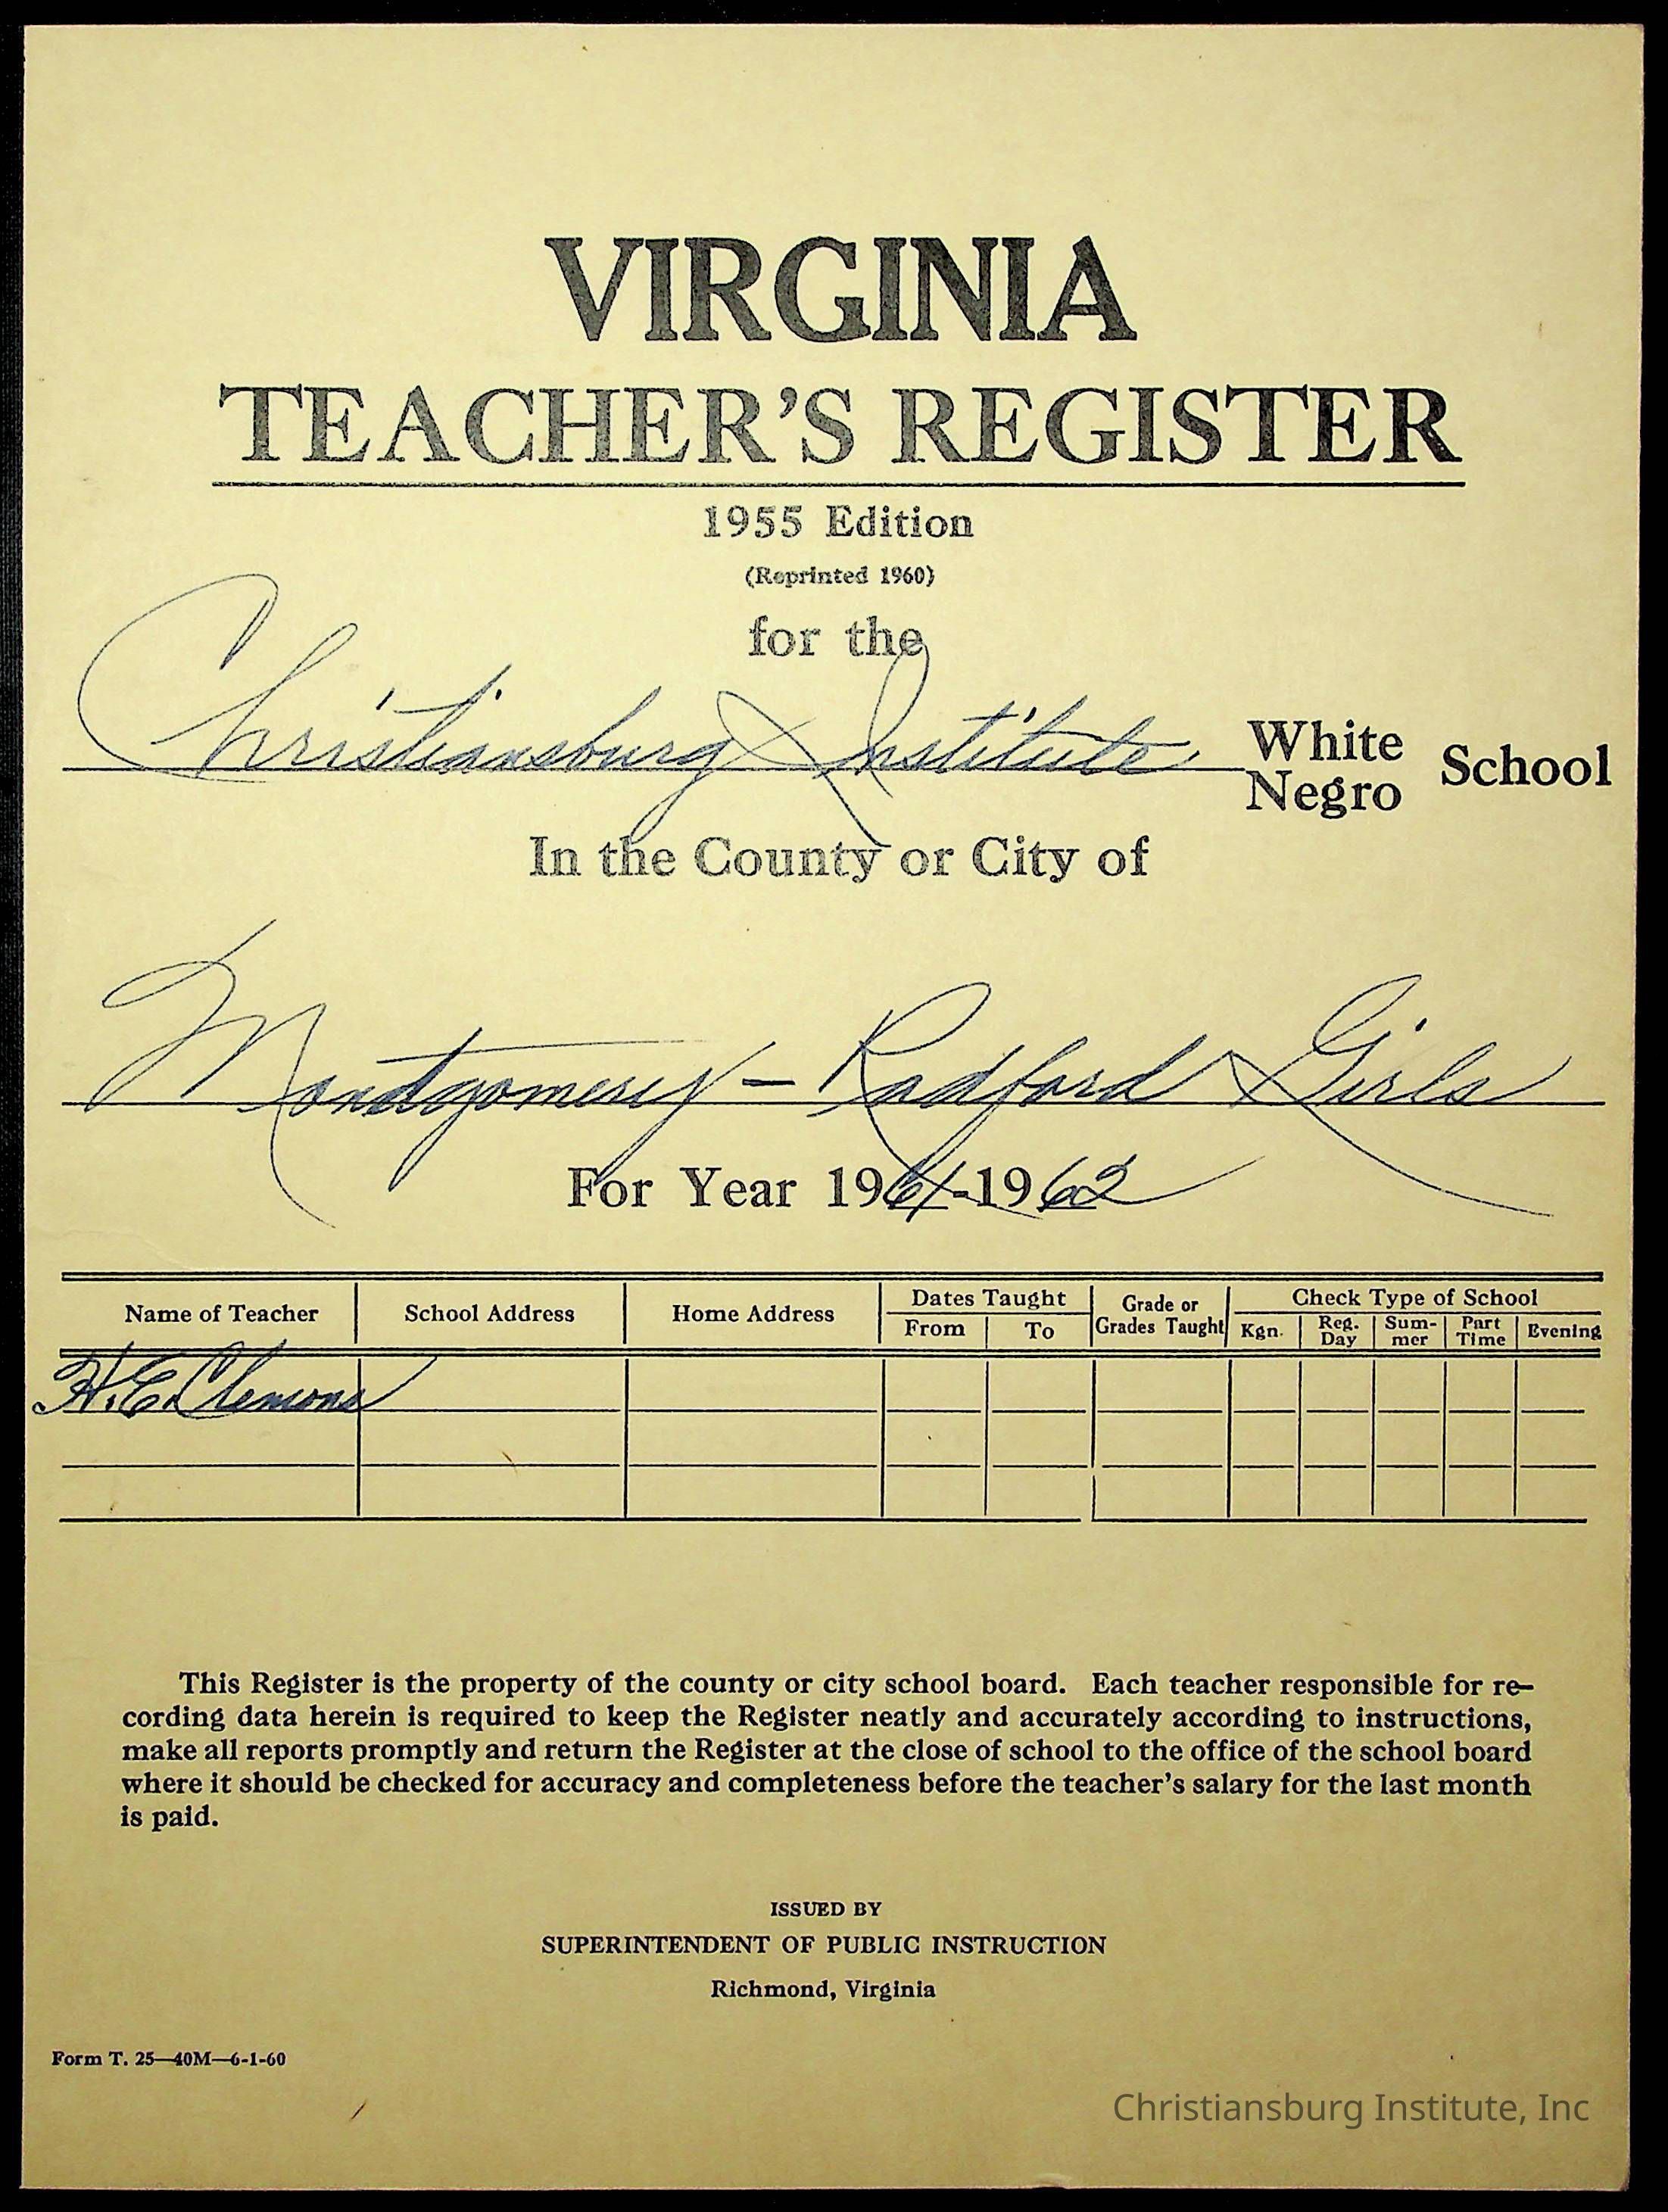 VIRGINIA
TEACHER'S REGISTER
1955 Edition
(Reprinted 1960)
for the
Christiansburg Institute White Negro School
In the County or City of
Montgomery - Radford Girls
For Year 1961-1962
Name of Teacher School Address Home Address Dates Taught From To Grade or Grades Taught Check Type of School Kgn. Reg. Day Sum-mer Part Time Evening
H. E. Clemons
This Register is the property of the county or city school board. Each teacher responsible for re-
cording data herein is required to keep the Register neatly and accurately according to instructions,
make all reports promptly and return the Register at the close of school to the office of the school board
where it should be checked for accuracy and completeness before the teacher's salary for the last month
is paid.
ISSUED BY
SUPERINTENDENT OF PUBLIC INSTRUCTION
Richmond, Virginia
Form T. 25—40M—6-1-60
Christiansburg Institute, Inc